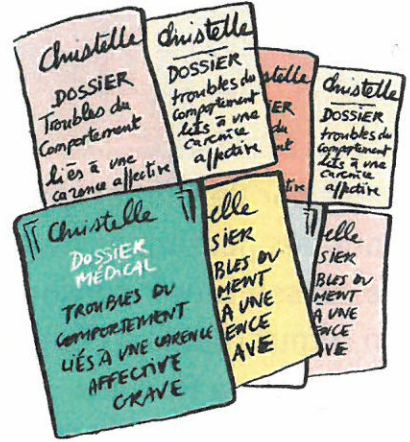 Christelle
DOSSIER
Troubles du
Comportement
liés à une
carence affective
Christelle
DOSSIER
troubles du
Comportement
liés à une
carence
affective
stelle
IER
du
ment
ne
tive
Christelle
DOSSIER
troubles du
Comportement
liés à une
carence
affective
Christelle
DOSSIER
MÉDICAL
TROUBLES DU
COMPORTEMENT
LIÉS À UNE CARENCE
AFFECTIVE
GRAVE
elle
SIER
BLES DU
MENT
À UNE
ENCE
AVE
elle
SIER
BLES DU
MENT
À UNE
ENCE
AVE